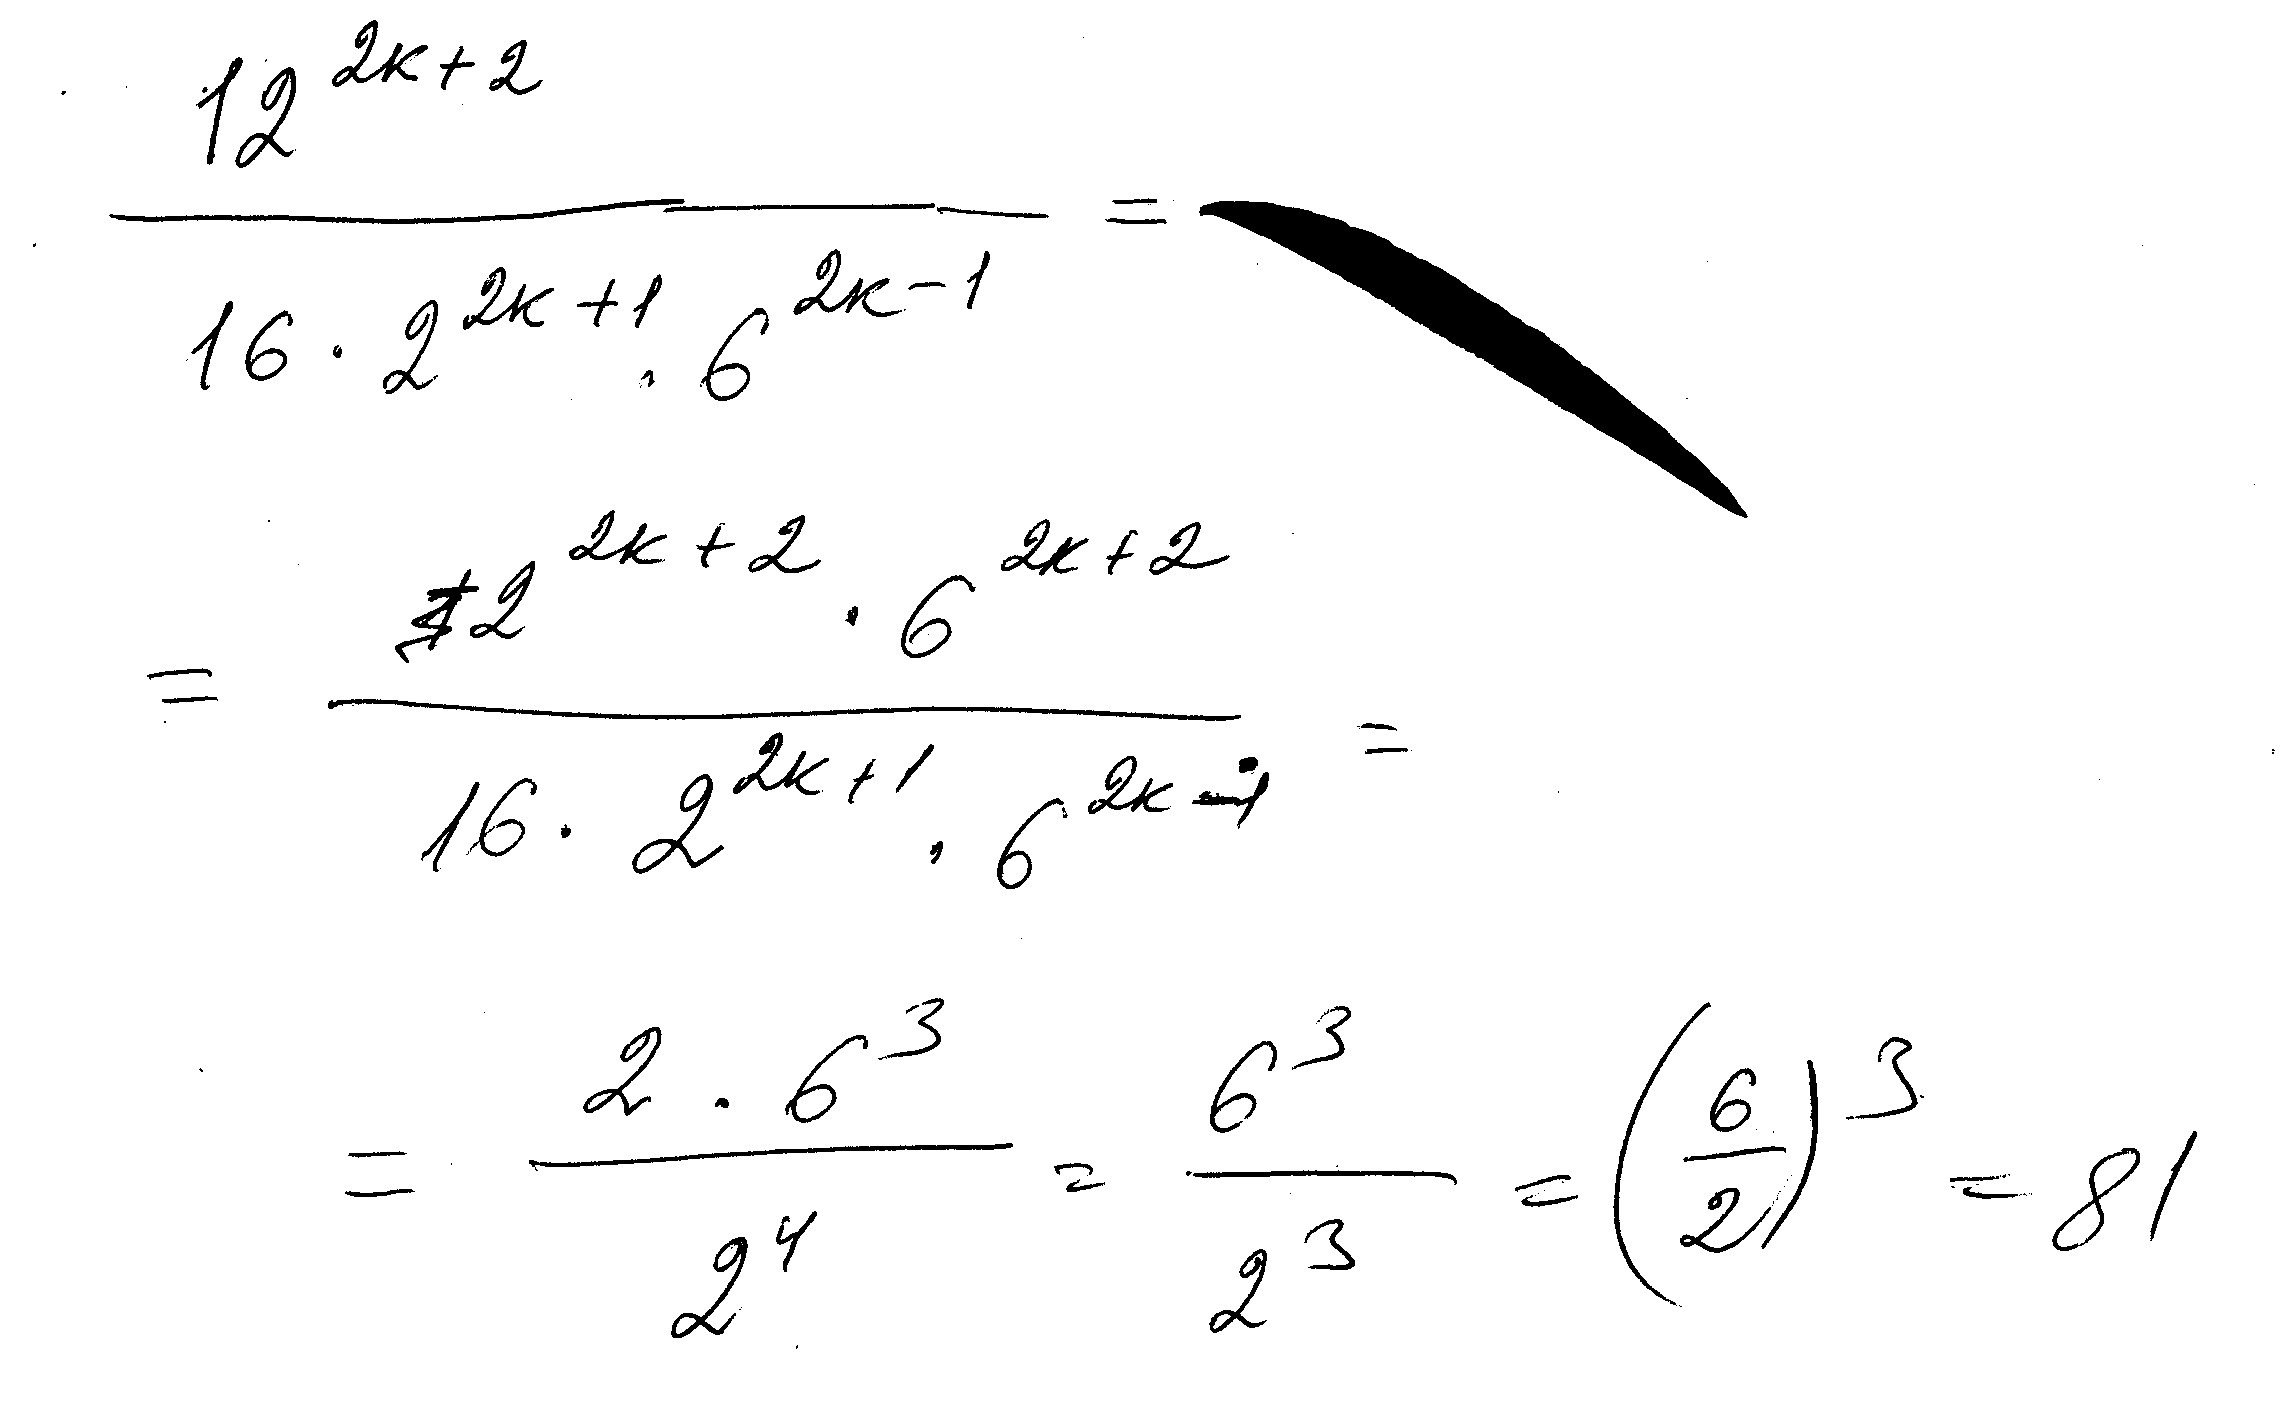 12^{2k+2}
/ 16 · 2^{2k+1} · 6^{2k-1} =
= 2^{2k+2} · 6^{2k+2}
/ 16 · 2^{2k+1} · 6^{2k-1} =
= 2 · 6^3 / 2^4 = 6^3 / 2^3 = (6/2)^3 = 81